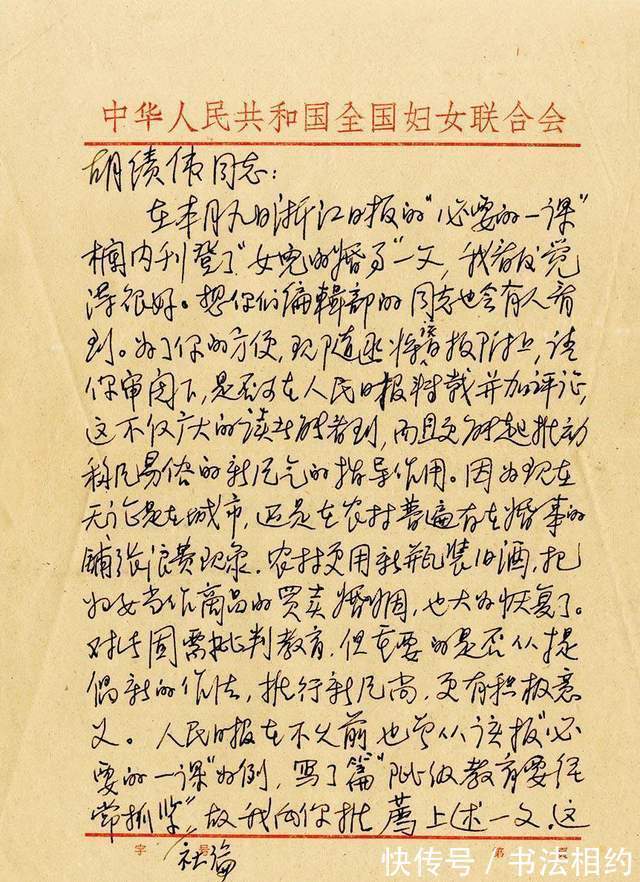 中华人民共和国全国妇女联合会
胡绩伟同志:
在本月九日浙江日报的"必要的一课"
栏内刊登了"女儿的婚事"一文,我看后觉
得很好。想你们编辑部的同志也会有人看
到。为了你的方便,现随函将该报附上,请
你审阅下,是否可在人民日报转载并加评论,
这不仅广大的读者能看到,而且更能起推动
移风易俗的新风气的指导作用。因为现在
无论是在城市,还是在农村普遍存在婚事的
铺张浪费现象.农村更用新瓶装旧酒,把
妇女当作商品的买卖婚姻,也大为恢复了。
对此固需批判教育,但重要的是否从提
倡新的作法,推行新风尚,更有积极意
义。人民日报在不久前也曾从该报"必
要的一课"为例,写了篇"阶级教育要经
常抓紧",故我向你推荐上述一文。这
社论
字 号 第 页
快传号/书法相约